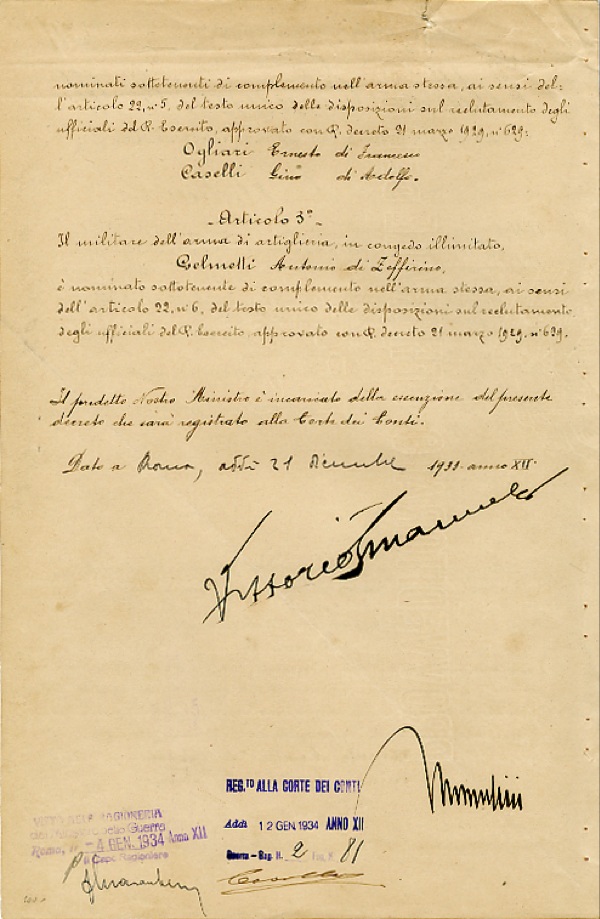 nominati sottotenenti di complemento nell'arma stessa, ai sensi del=
l'articolo 22, n°5, del testo unico delle disposizioni sul reclutamento degli
ufficiali del R. Esercito, approvato con R. decreto 21 marzo 1929, n°629:
Ogliari Ernesto di Francesco
Caselli Gino di Adolfo.
- Articolo 3° -
Il militare dell'arma di artiglieria, in congedo illimitato,
Gelmetti Antonio di Zeffirino,
è nominato sottotenente di complemento nell'arma stessa, ai sensi
dell'articolo 22, n°6, del testo unico delle disposizioni sul reclutamento
degli ufficiali del R. Esercito, approvato con R. decreto 21 marzo 1929, n°629.
Il predetto Nostro Ministro è incaricato della esecuzione del presente
decreto che sarà registrato alla Corte dei Conti.
Dato a Roma, addì 21 dicembre 1933 anno XII
Vittorio Emanuele
Mussolini
REG.TO ALLA CORTE DEI CONTI
Addì 12 GEN. 1934 ANNO XII
Guerra - Reg. N. 2 Fog. N. 81
VISTO ALLA RAGIONERIA
della Guerra
Roma, li - 4 GEN. 1934 Anno XII
Il Capo Ragioniere